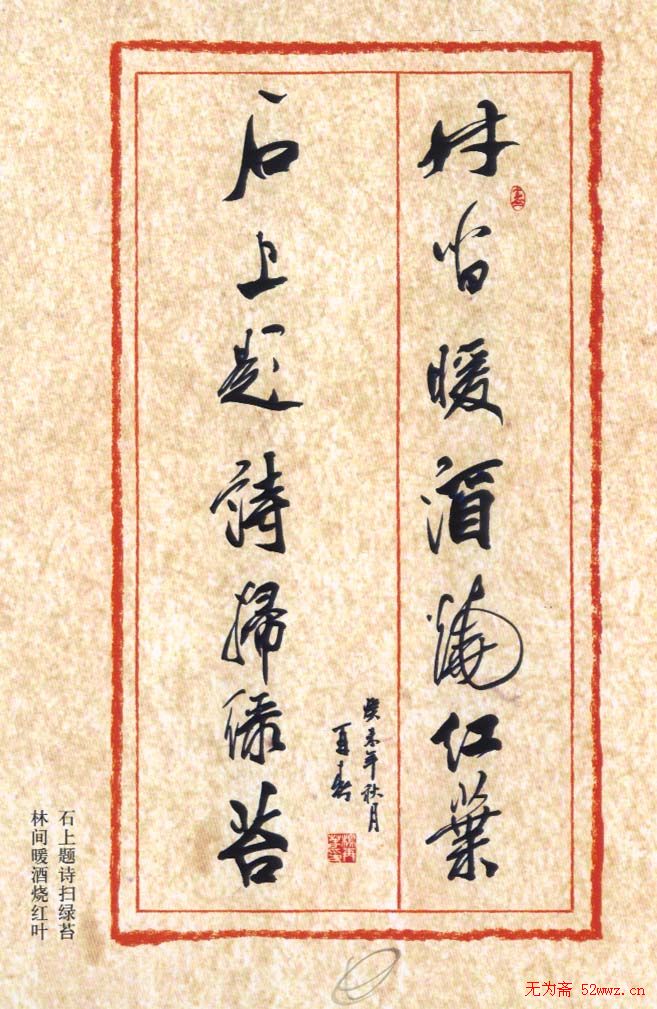 林間暖酒燒紅葉
石上題詩掃緑苔
癸未年秋月
再春
石上题诗扫绿苔
林间暖酒烧红叶
无为斋 52wwz.cn